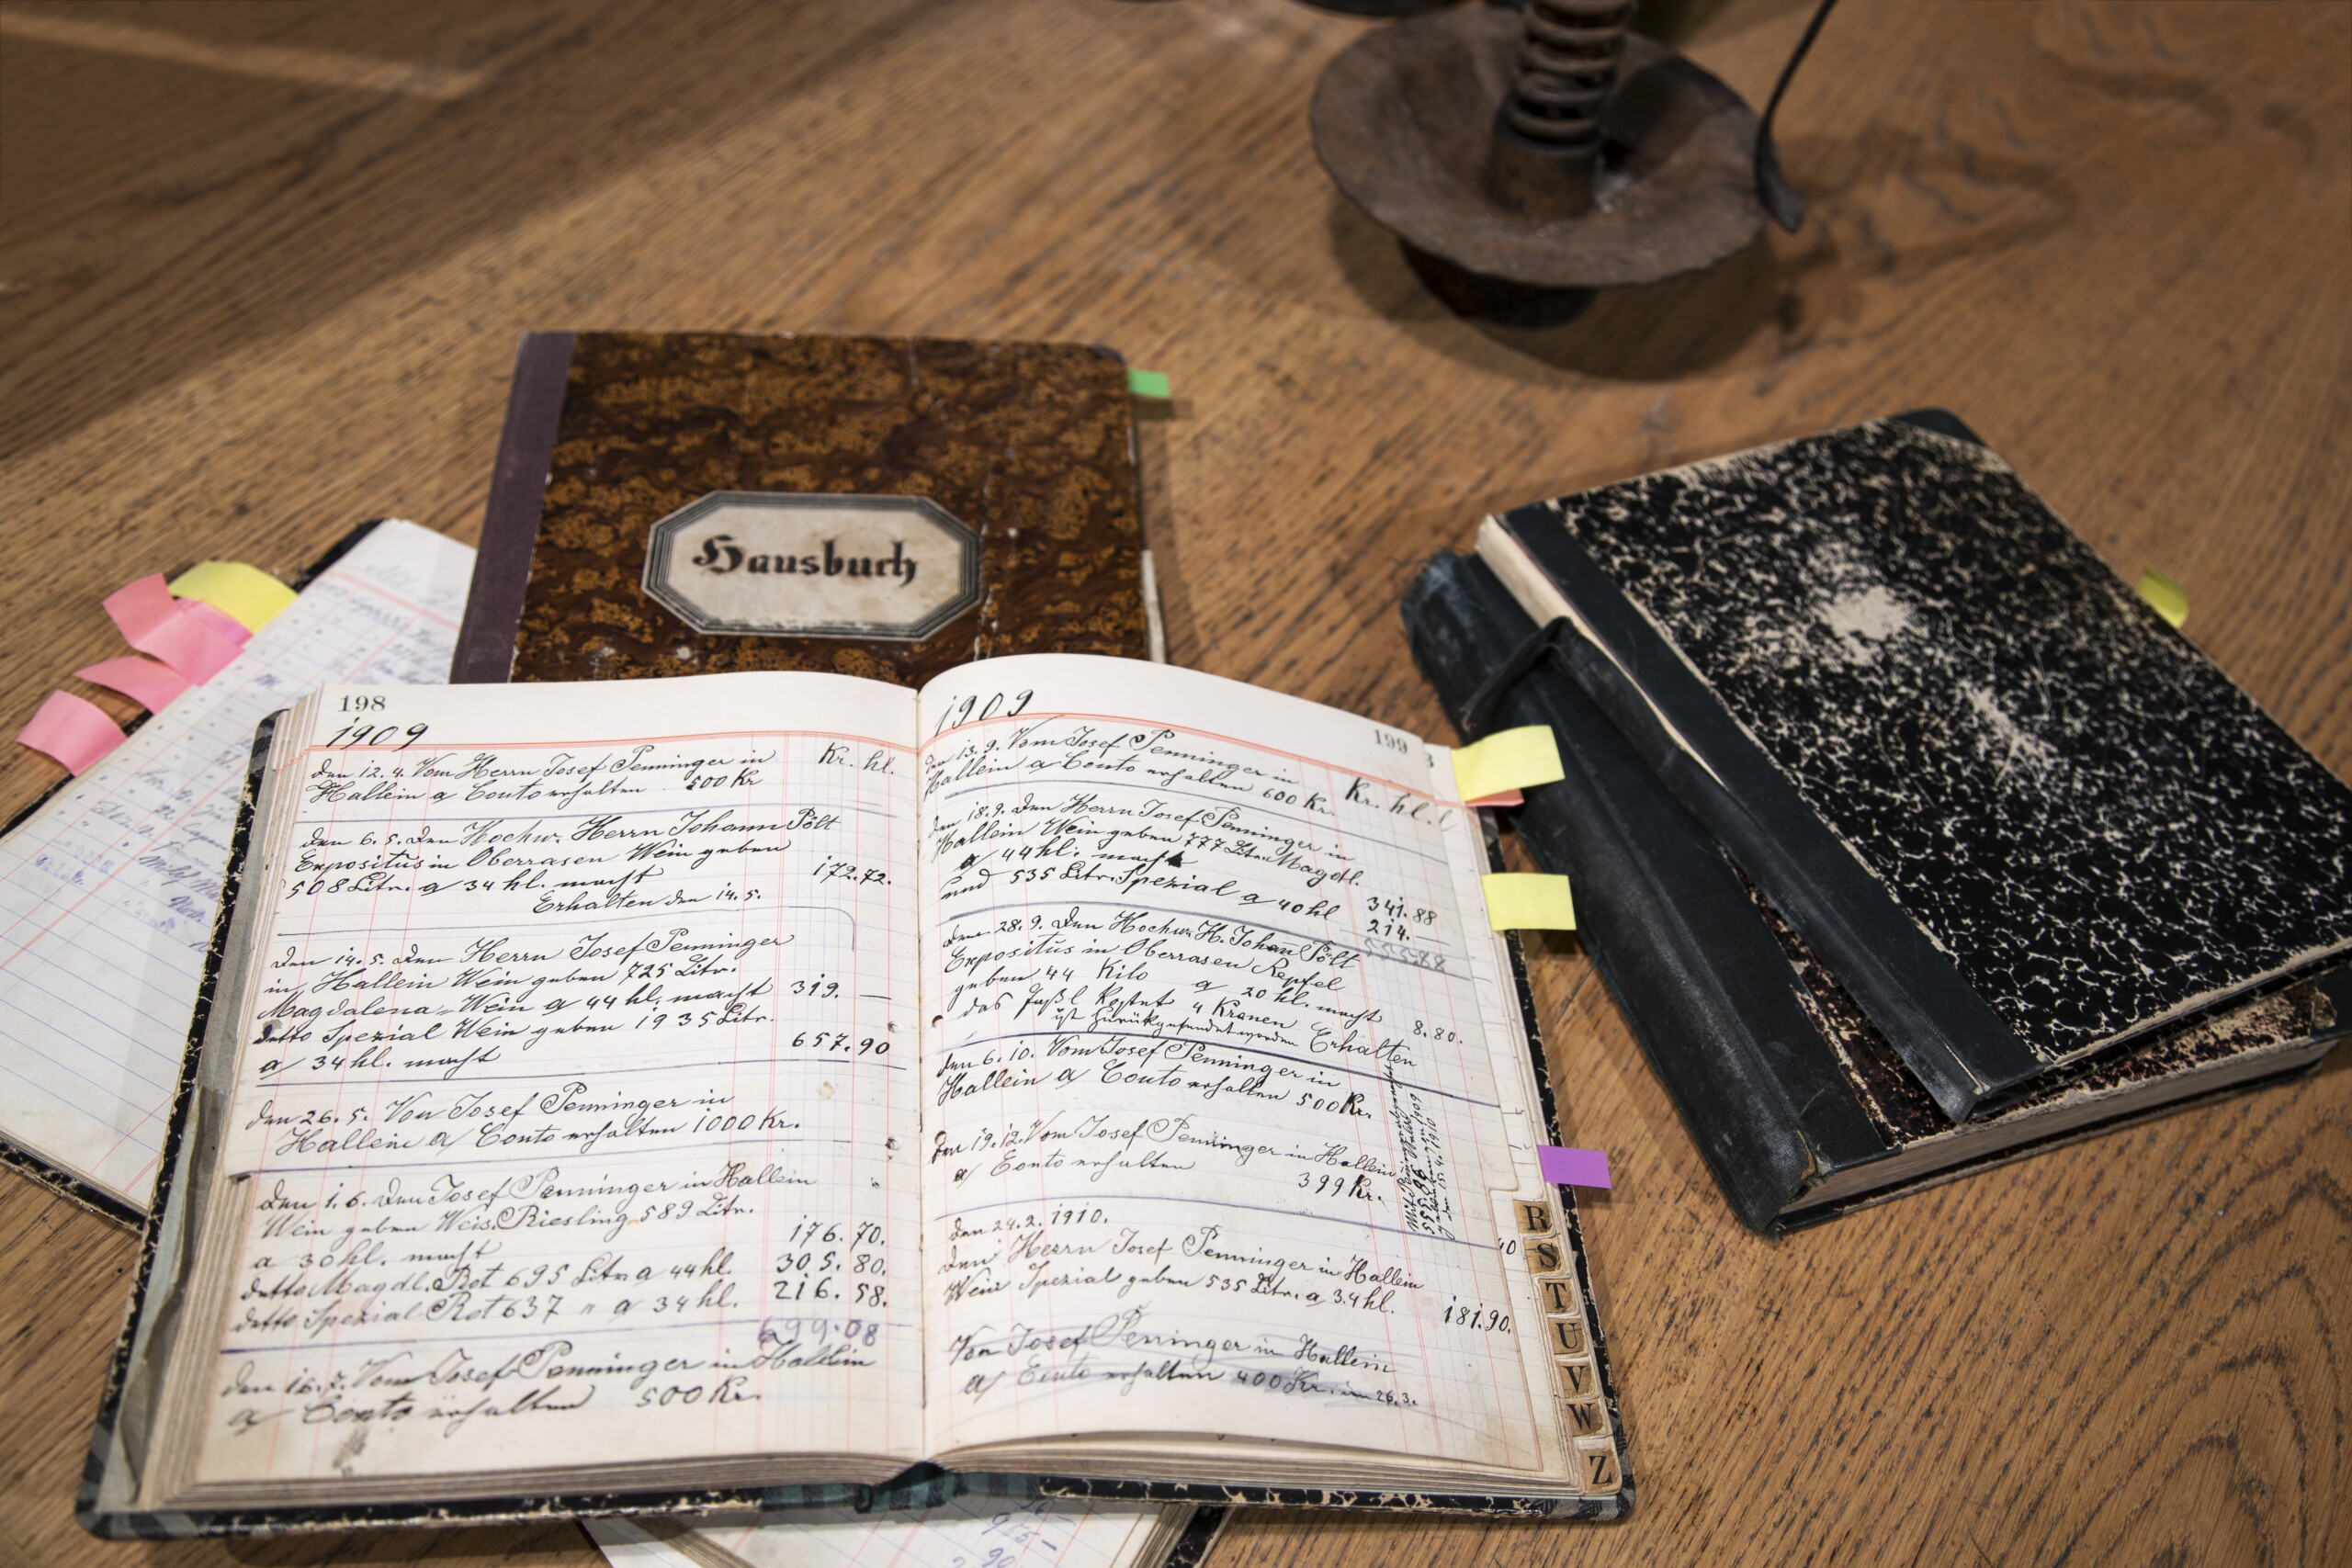 Hausbuch
198
1909
Kr. hl.
den 12. 4. Vom Herrn Josef Penninger in
Hallein a Conto erhalten 500 Kr
den 6. 5. den Hochw. Herrn Johann Pölt
Expositus in Oberrasen Wein geben
508 Litr. a 34 hl. macht 172.72.
Erhalten den 14. 5.
den 14. 5. den Herrn Josef Penninger
in Hallein Wein geben 725 Litr.
Magdalena-Wein a 44 hl. macht 319. —
detto Spezial Wein geben 1935 Litr.
a 34 hl. macht 657.90
den 26. 5. Von Josef Penninger in
Hallein a Conto erhalten 1000 Kr.
den 1. 6. den Josef Penninger in Hallein
Wein geben Weis. Riesling 589 Litr.
a 30 hl. macht 176.70.
detto Magdl. Rot 695 Litr. a 44 hl. 305.80.
detto Spezial Rot 637 " a 34 hl. 216.58.
699.08
den 16. 7. Vom Josef Penninger in Hallein
a Conto erhalten 500 Kr.
199
1909
den 13. 9. Vom Josef Penninger in
Hallein a Conto erhalten 600 Kr.
Kr. hl.
den 18. 9. den Herrn Josef Penninger in
Hallein Wein geben 777 Litr. Magdl.
a 44 hl. macht 341.88
und 535 Litr. Spezial a 40 hl 214.
555.88
den 28. 9. den Hochw. H. Johan Pölt
Expositus in Oberrasen Aepfel
geben 44 Kilo a 20 hl. macht 8.80.
das Faßl kostet 4 Kronen Erhalten
ist zurükgesendet worden
den 6. 10. Vom Josef Penninger in
Hallein a Conto erhalten 500 Kr.
den 19. 12. Vom Josef Penninger in Hallein
a Conto erhalten 399 Kr.
den 24. 2. 1910.
den Herrn Josef Penninger in Hallein
Wein Spezial geben 535 Litr. a 34 hl. 181.90.
Von Josef Penninger in Hallein
a Conto erhalten 400 Kr. 26. 3.
R
S
T
U
V
W
Z